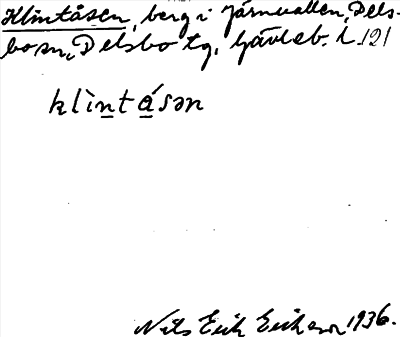 Klintåsen, berg i Järnvallen, Dels-
bosn, Delsbo tg, Gävleb. l. 121
klìnt ásən
Nils Erik Erikson 1936.